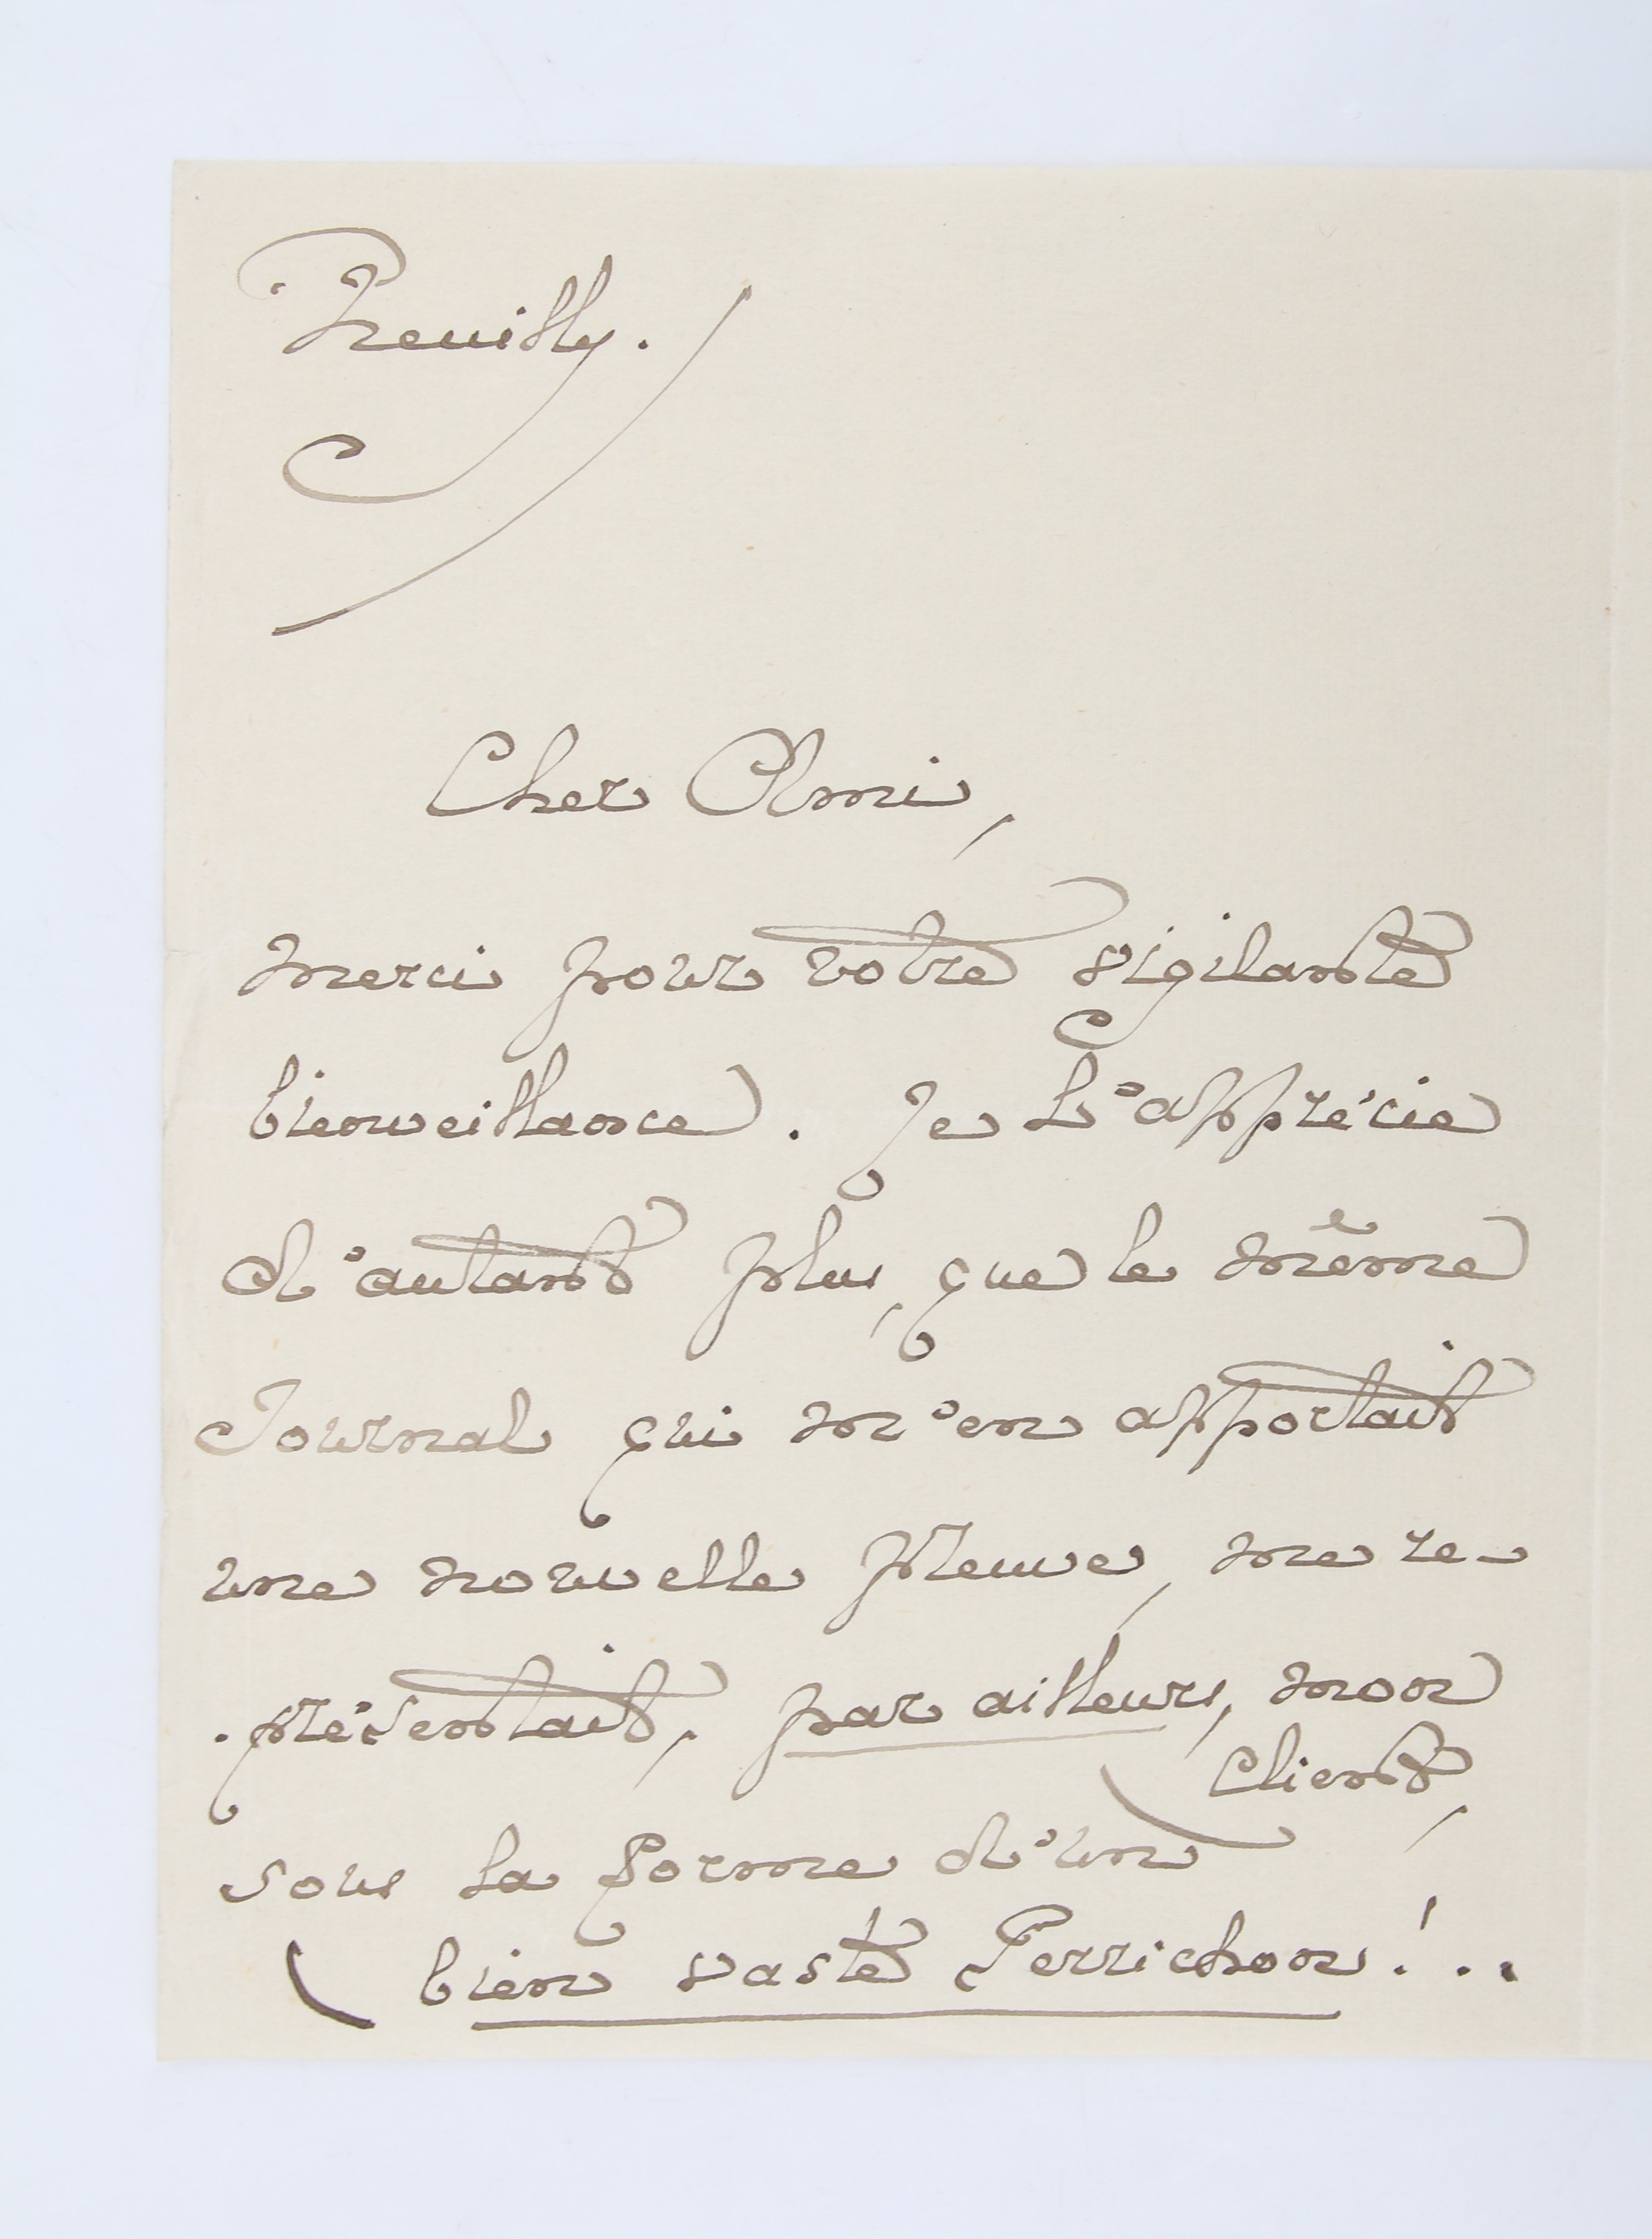 Neuilly.
Cher Ami,
merci pour votre vigilante
bienveillance. Je l'apprécie
d'autant plus, que le même
Journal qui m'en apportait
une nouvelle preuve, me re-
présentait, par ailleurs, mon
Client,
sous la forme d'un
bien vaste Perrichon!..